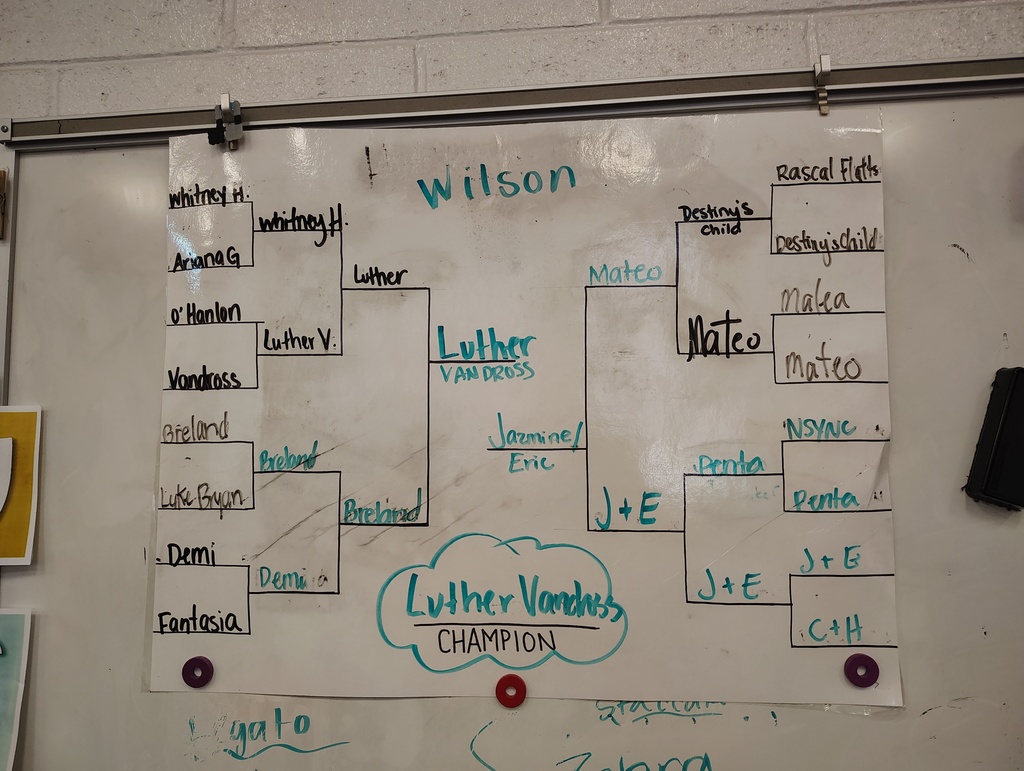 Wilson
Whitney H.
Ariana G
O'Hanlon
Vandross
Breland
Luke Bryan
Demi
Fantasia
Whitney H.
Luther V.
Breland
Demi
Luther
Breland
Luther
VANDROSS
Jazmine/
Eric
Mateo
J + E
Destiny's
Child
Mateo
Penta
J + E
Rascal Flatts
Destiny's Child
Malea
Mateo
NSYNC
Penta
J + E
C + H
Luther Vandross
CHAMPION
Legato
Zebra